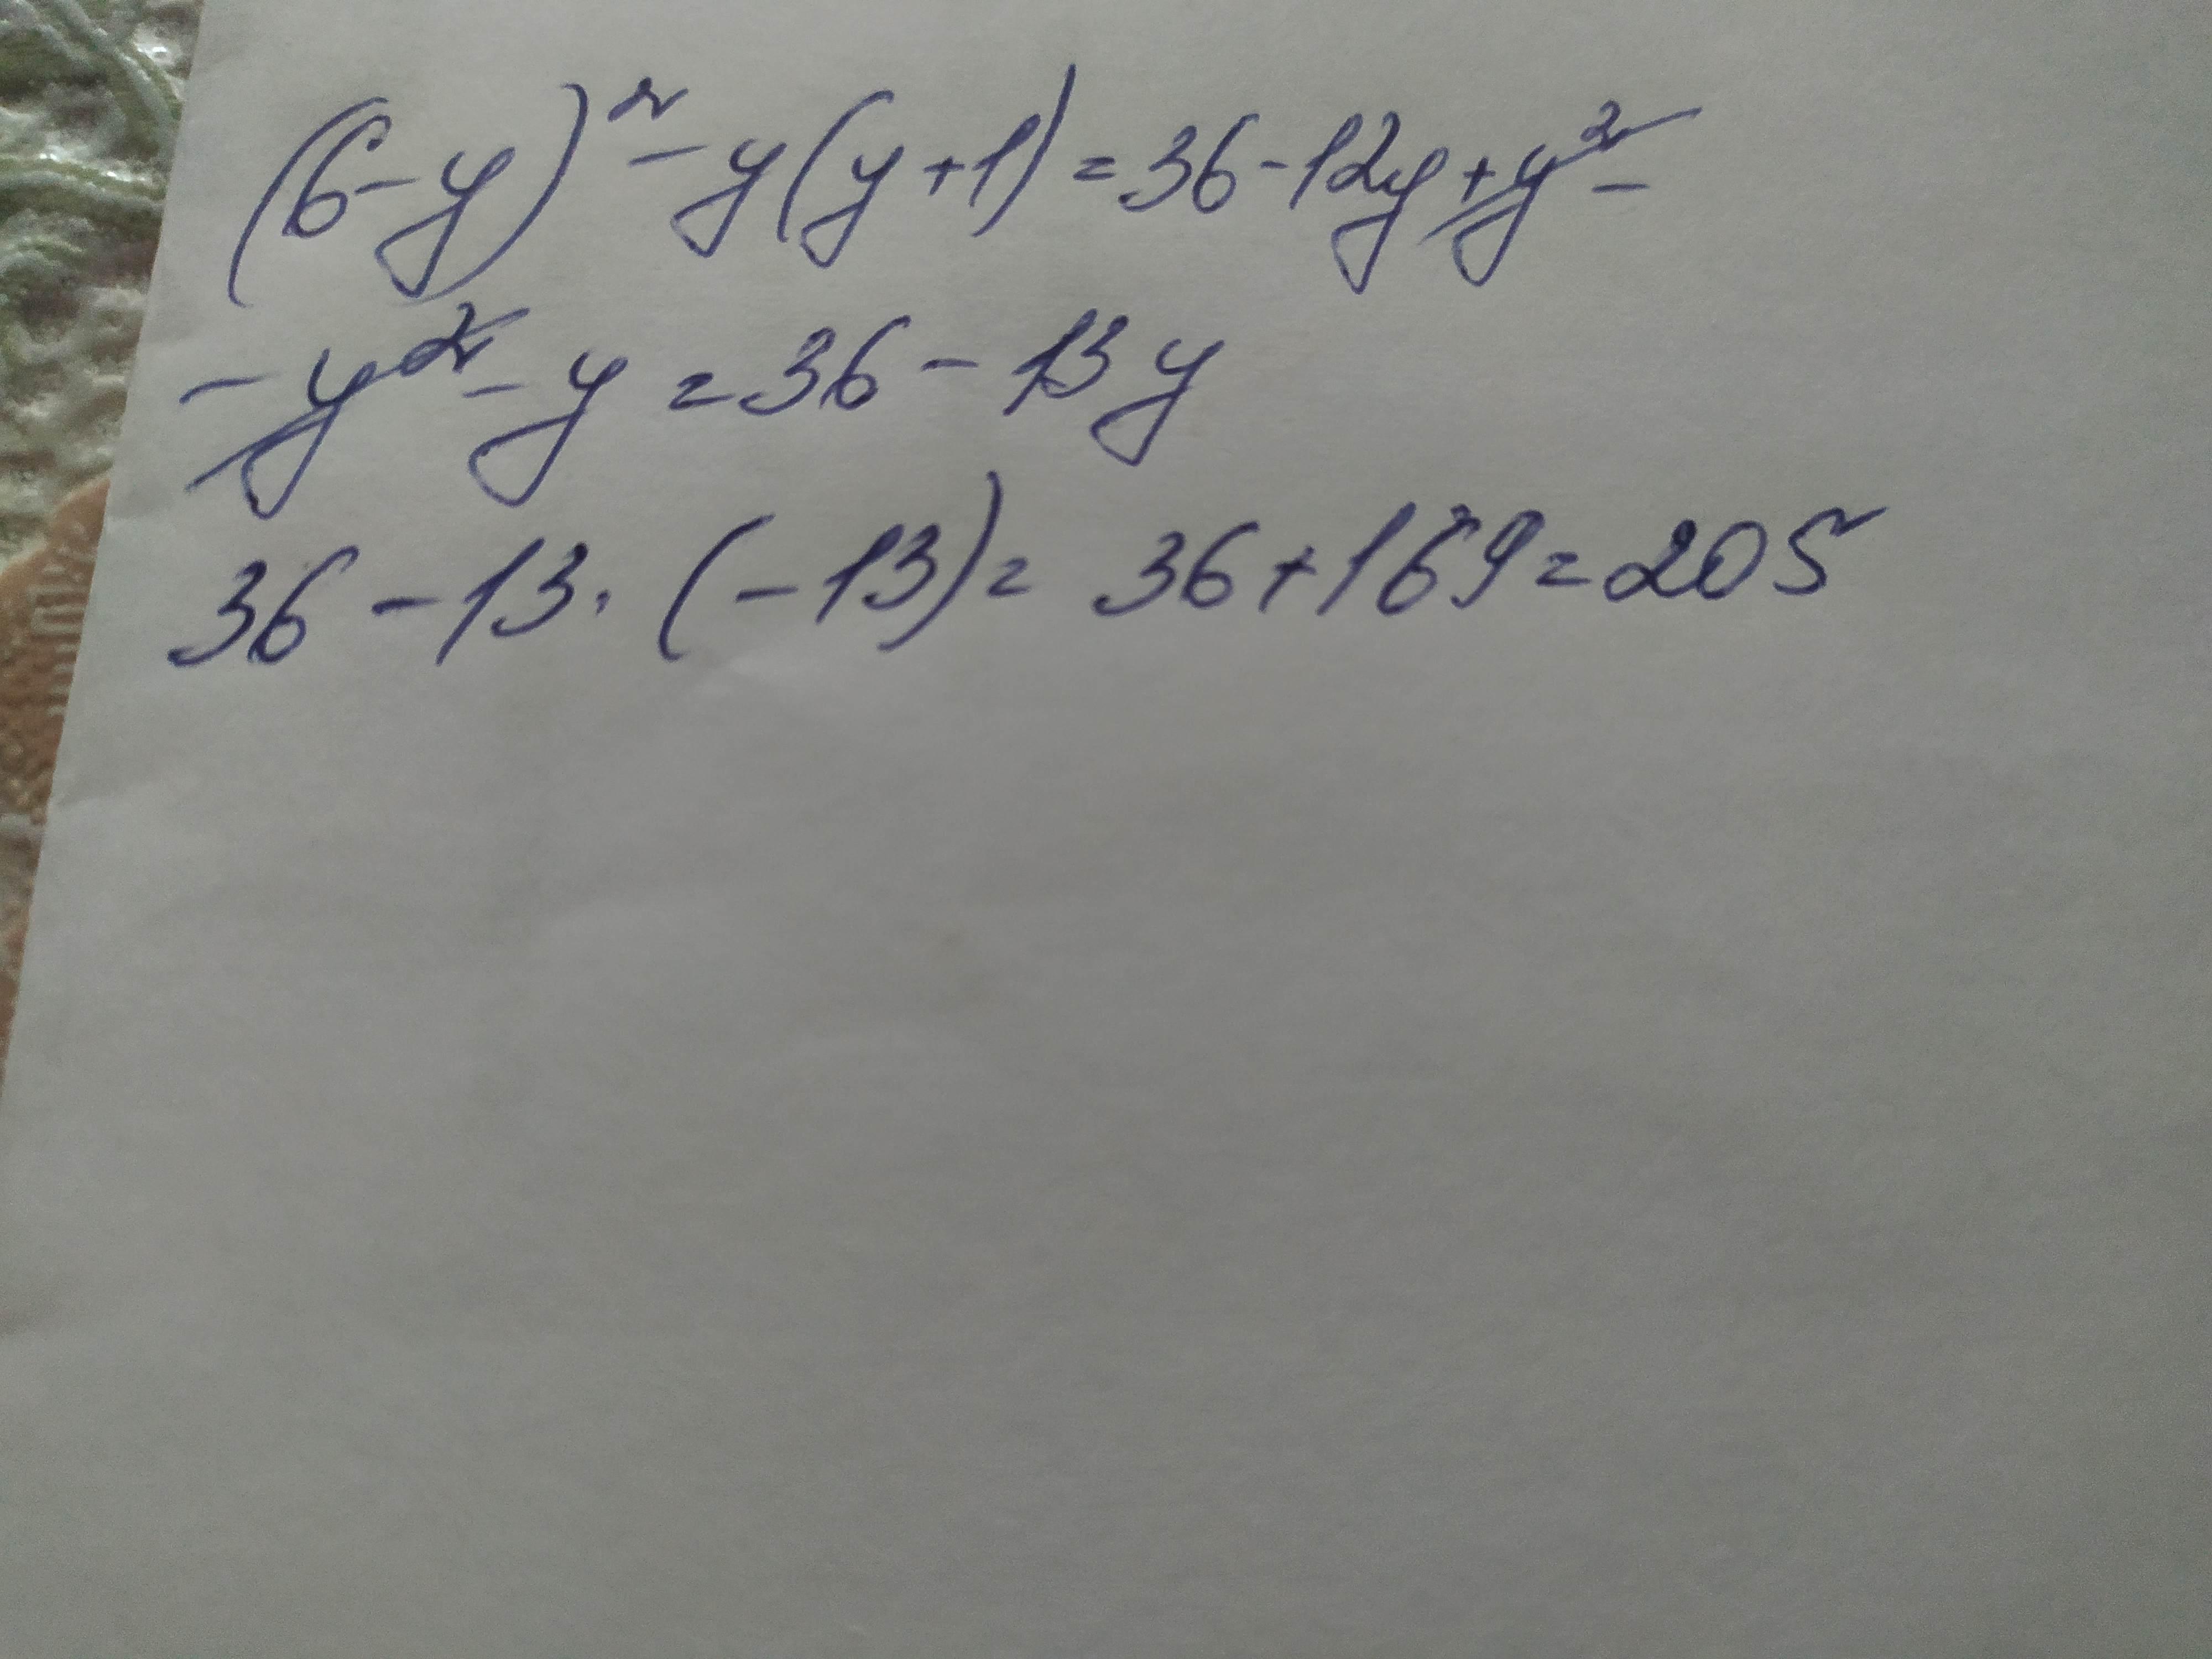 (6-y)² - y(y+1) = 36-12y+y² -
- y² - y = 36 - 13y
36 - 13 · (-13) = 36 + 169 = 205